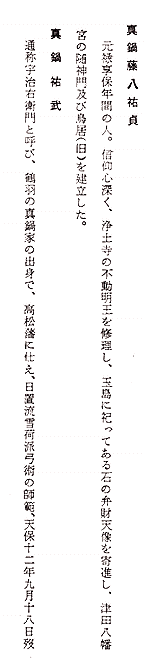 真鍋藤八祐貞
元禄享保年間の人。信仰心深く、浄土寺の不動明王を修理し、玉島に祀ってある石の弁財天像を寄進し、津田八幡
宮の随神門及び鳥居(旧)を建立した。
真鍋祐武
通称宇治右衛門と呼び、鶴羽の真鍋家の出身で、高松藩に仕え、日置流雪荷派弓術の師範、天保十二年九月十八日歿